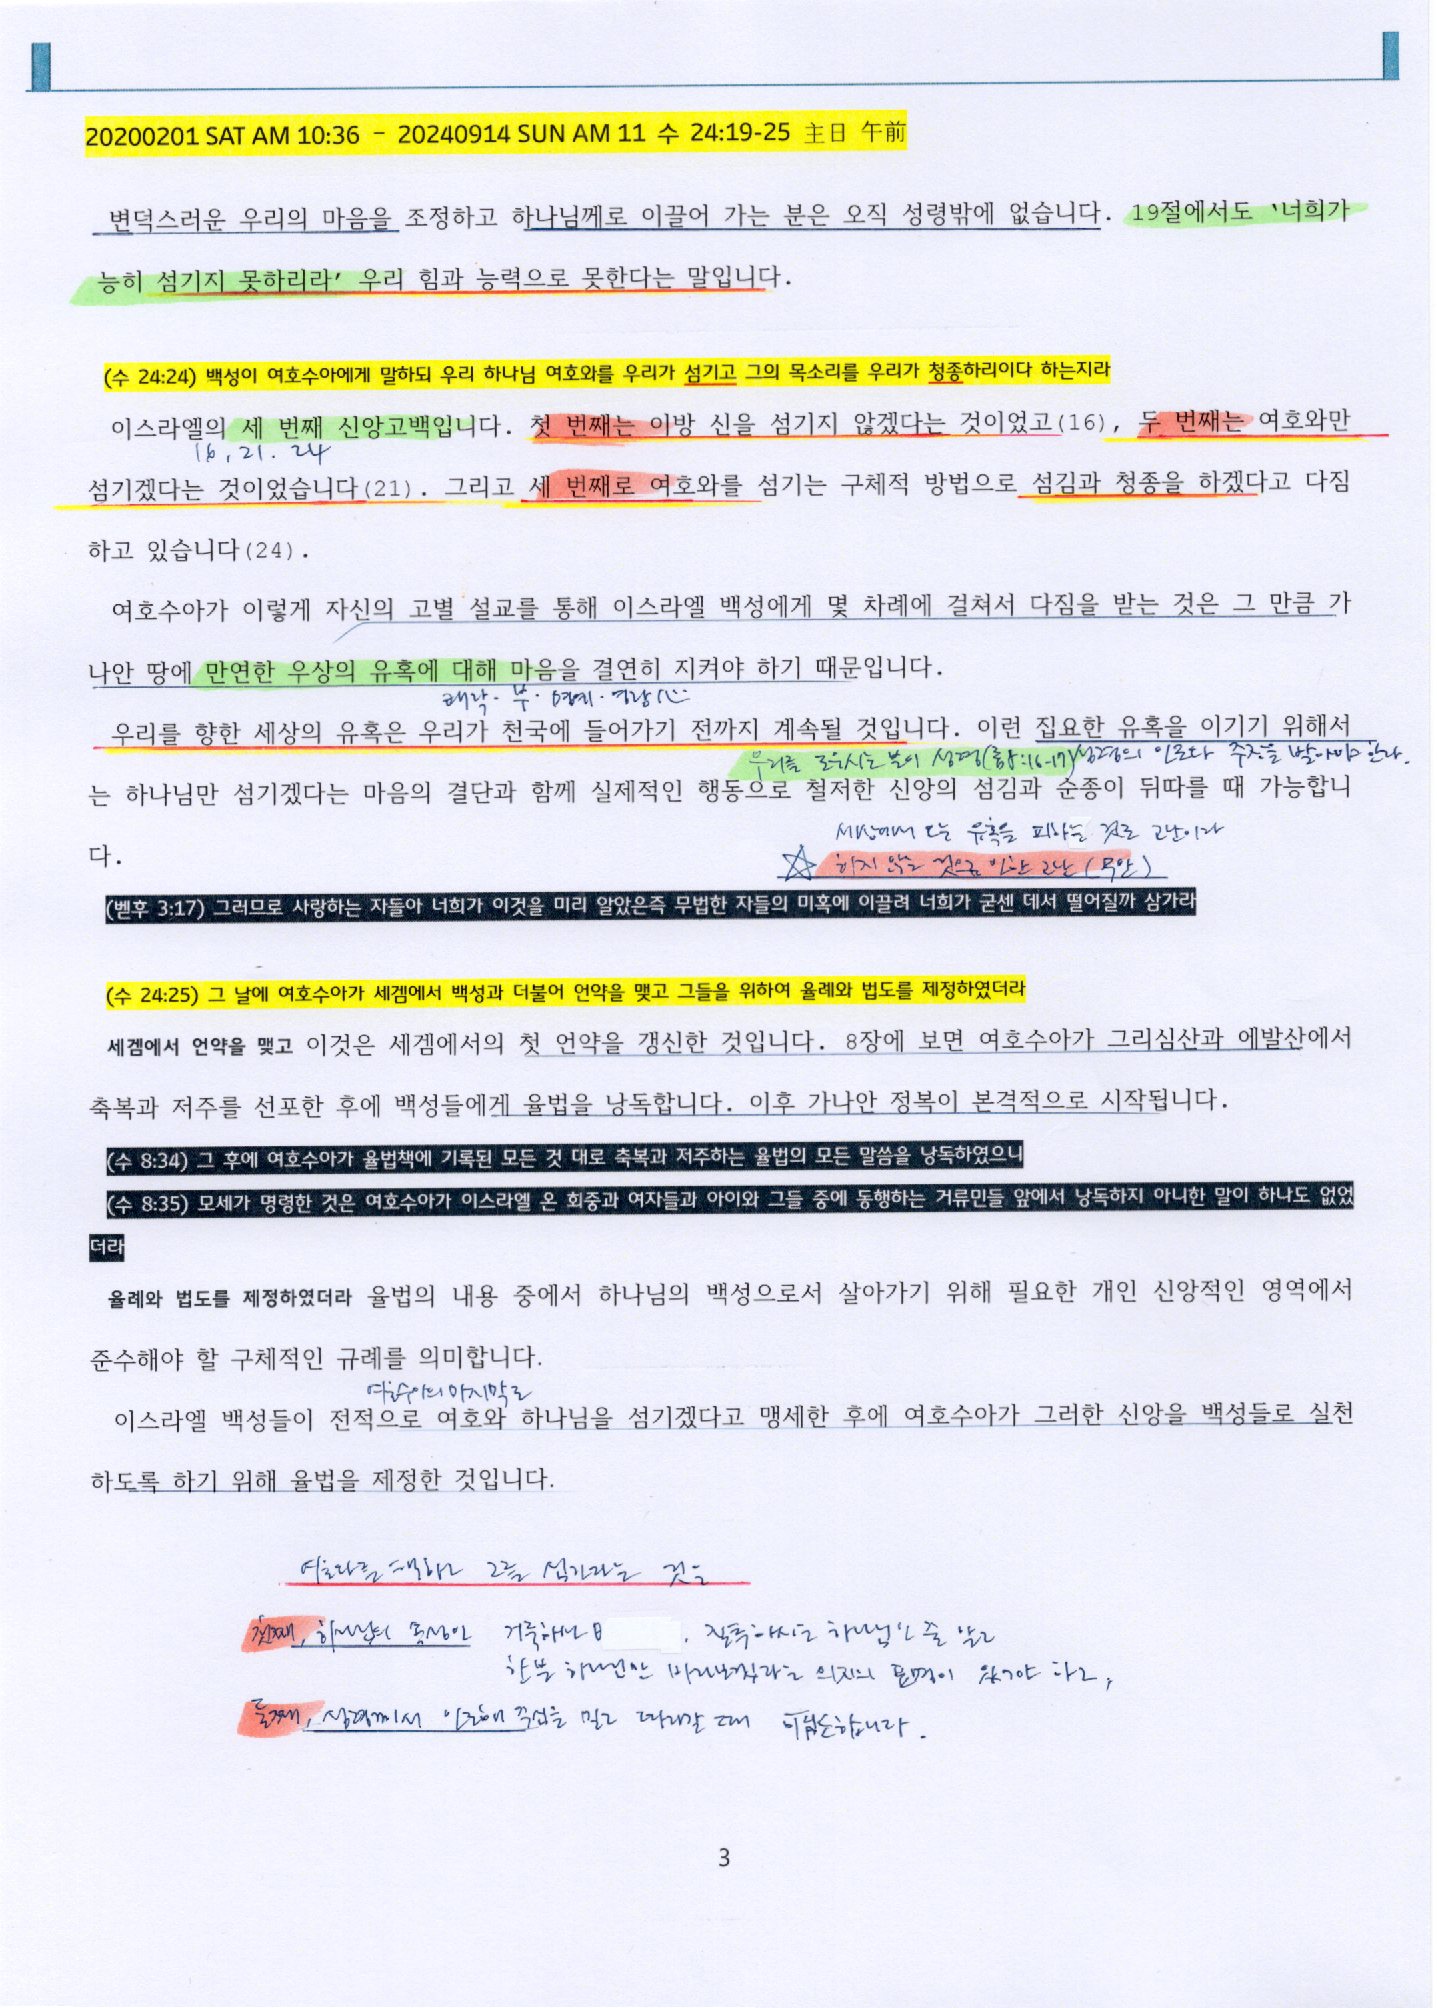 20200201 SAT AM 10:36 - 20240914 SUN AM 11 수 24:19-25 主日 午前
변덕스러운 우리의 마음을 조정하고 하나님께로 이끌어 가는 분은 오직 성령밖에 없습니다. 19절에서도 ‘너희가
능히 섬기지 못하리라’ 우리 힘과 능력으로 못한다는 말입니다.
(수 24:24) 백성이 여호수아에게 말하되 우리 하나님 여호와를 우리가 섬기고 그의 목소리를 우리가 청종하리이다 하는지라
이스라엘의 세 번째 신앙고백입니다. 첫 번째는 이방 신을 섬기지 않겠다는 것이었고(16), 두 번째는 여호와만
16, 21. 24
섬기겠다는 것이었습니다(21). 그리고 세 번째로 여호와를 섬기는 구체적 방법으로 섬김과 청종을 하겠다고 다짐
하고 있습니다(24).
여호수아가 이렇게 자신의 고별 설교를 통해 이스라엘 백성에게 몇 차례에 걸쳐서 다짐을 받는 것은 그 만큼 가
나안 땅에 만연한 우상의 유혹에 대해 마음을 결연히 지켜야 하기 때문입니다.
쾌락. 부. 명예.
우리를 향한 세상의 유혹은 우리가 천국에 들어가기 전까지 계속될 것입니다. 이런 집요한 유혹을 이기기 위해서
우리를 도우시는 분이 성령 성령의 인도와 을 받아야 한다.
는 하나님만 섬기겠다는 마음의 결단과 함께 실제적인 행동으로 철저한 신앙의 섬김과 순종이 뒤따를 때 가능합니
세상에서 오는 유혹을 피하는 것도 고난이라
다.
하지 않는 것으로 인한 고난
(벧후 3:17) 그러므로 사랑하는 자들아 너희가 이것을 미리 알았은즉 무법한 자들의 미혹에 이끌려 너희가 굳센 데서 떨어질까 삼가라
(수 24:25) 그 날에 여호수아가 세겜에서 백성과 더불어 언약을 맺고 그들을 위하여 율례와 법도를 제정하였더라
세겜에서 언약을 맺고 이것은 세겜에서의 첫 언약을 갱신한 것입니다. 8장에 보면 여호수아가 그리심산과 에발산에서
축복과 저주를 선포한 후에 백성들에게 율법을 낭독합니다. 이후 가나안 정복이 본격적으로 시작됩니다.
(수 8:34) 그 후에 여호수아가 율법책에 기록된 모든 것 대로 축복과 저주하는 율법의 모든 말씀을 낭독하였으니
(수 8:35) 모세가 명령한 것은 여호수아가 이스라엘 온 회중과 여자들과 아이와 그들 중에 동행하는 거류민들 앞에서 낭독하지 아니한 말이 하나도 없었
더라
율례와 법도를 제정하였더라 율법의 내용 중에서 하나님의 백성으로서 살아가기 위해 필요한 개인 신앙적인 영역에서
준수해야 할 구체적인 규례를 의미합니다.
여호수아의 마지막으로
이스라엘 백성들이 전적으로 여호와 하나님을 섬기겠다고 맹세한 후에 여호수아가 그러한 신앙을 백성들로 실천
하도록 하기 위해 율법을 제정한 것입니다.
여호와를 택하고 그를 섬기라는 것은
첫째, 하나님의 거룩하나 질투하시는 하나님인 줄 알고
한분 하나님만 의지의 표명이 있어야 하고,
둘째, 성령께서 인도해 주심을 믿고 따라갈 때 가능합니다.
3